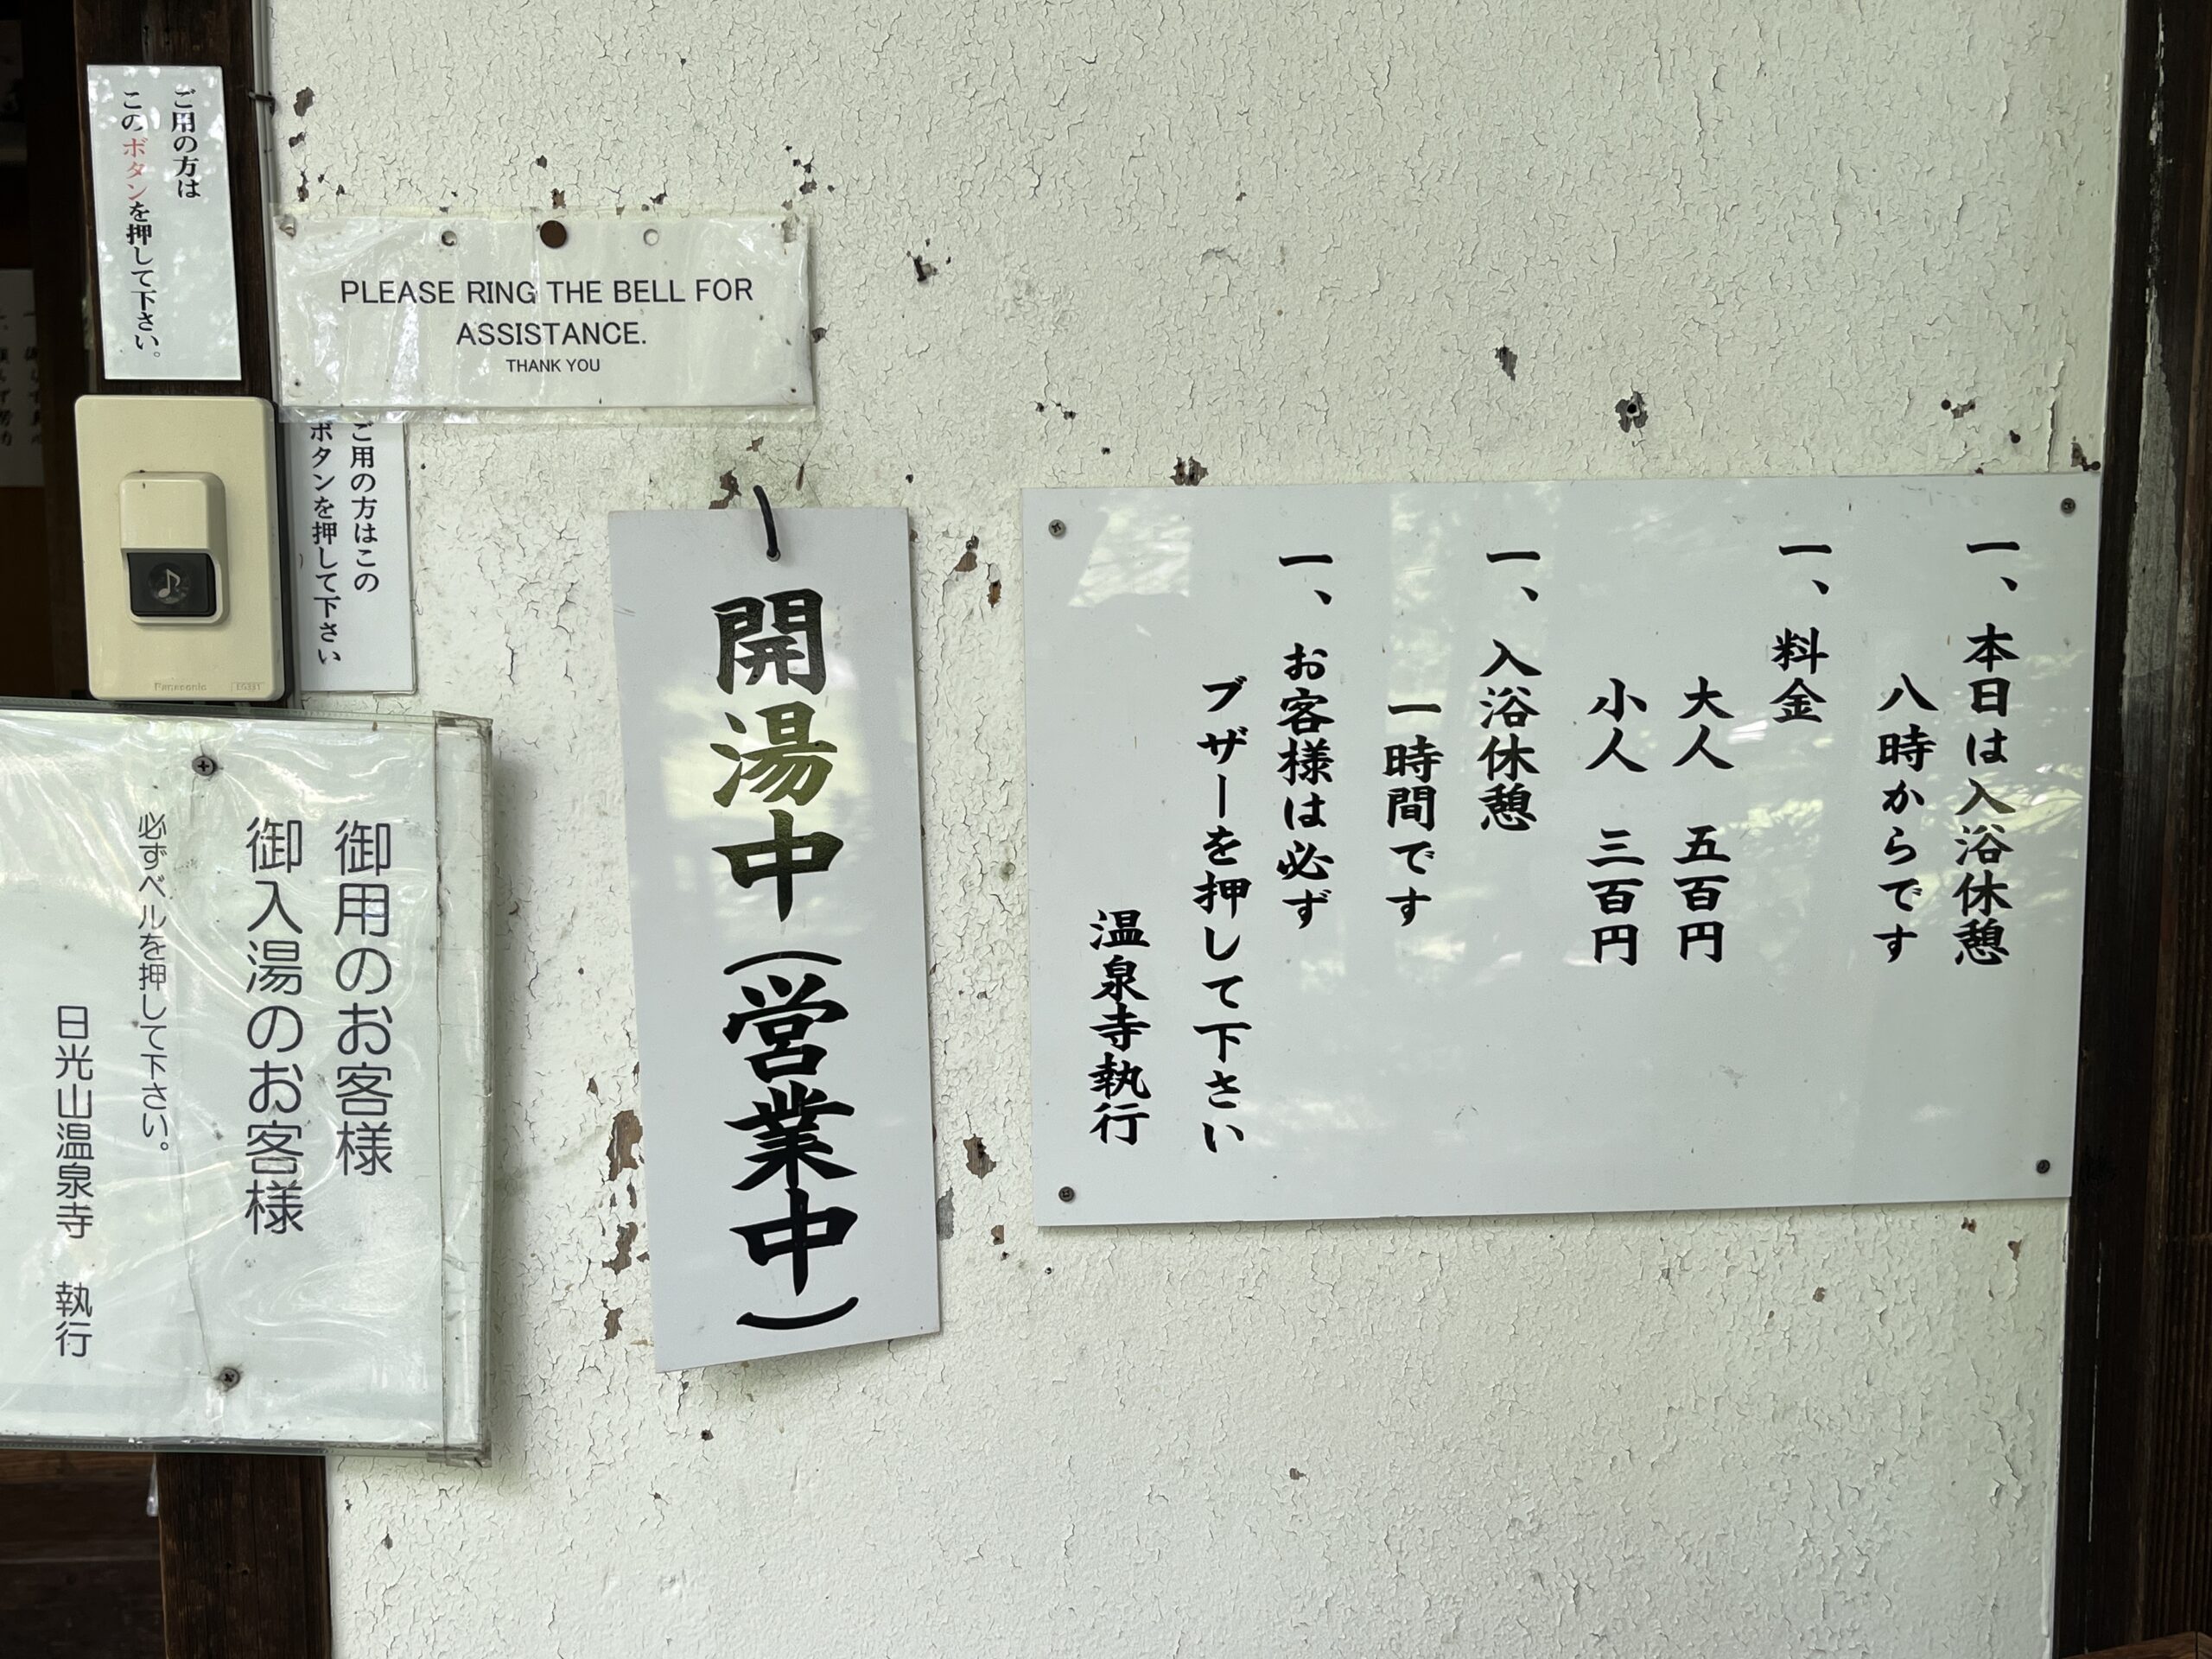 ご用の方は
このボタンを押して下さい。
PLEASE RING THE BELL FOR
ASSISTANCE.
THANK YOU
ご用の方はこの
ボタンを押して下さい
Panasonic
御用のお客様
御入湯のお客様
必ずベルを押して下さい。
日光山温泉寺 執行
開湯中(営業中)
一、本日は入浴休憩
八時からです
一、料金
大人 五百円
小人 三百円
一、入浴休憩
一時間です
一、お客様は必ず
ブザーを押して下さい
温泉寺執行